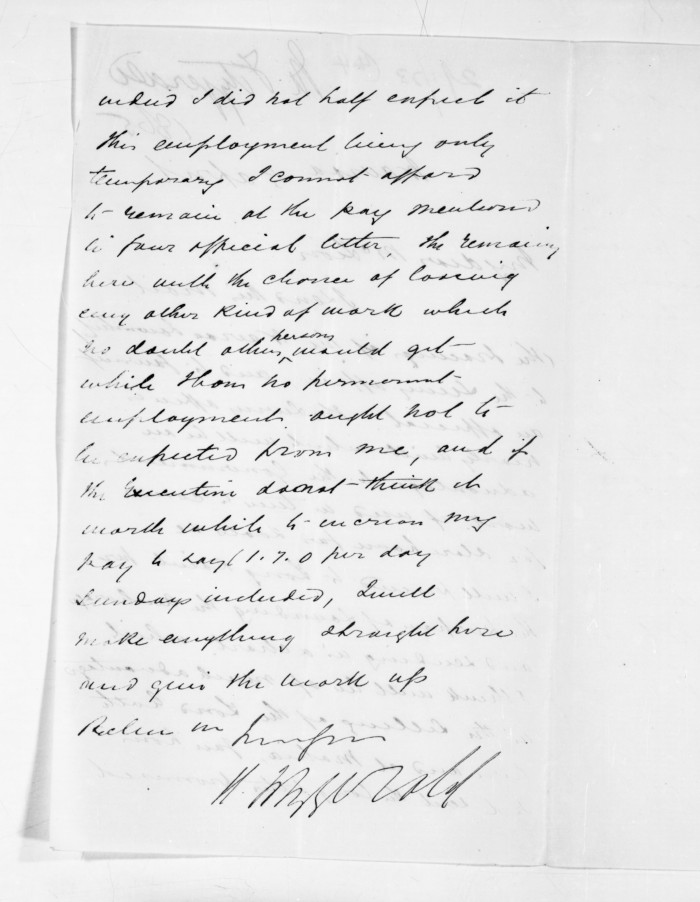 indeed I did not half expect it
this employment being only
temporary I cannot afford
to remain at the pay mentioned
in your official letter. The remaing
here with the chance of loosing
any other kind of work which
no doubt other persons would get
while I have no permanent
employment ought not to
be expected from me, and if
the Executive do not think it
worth while to increase my
pay to say £1.7.0 per day
Sundays included, I will
make anything straight here
and give the work up
Believe me
H. Fitzgerald